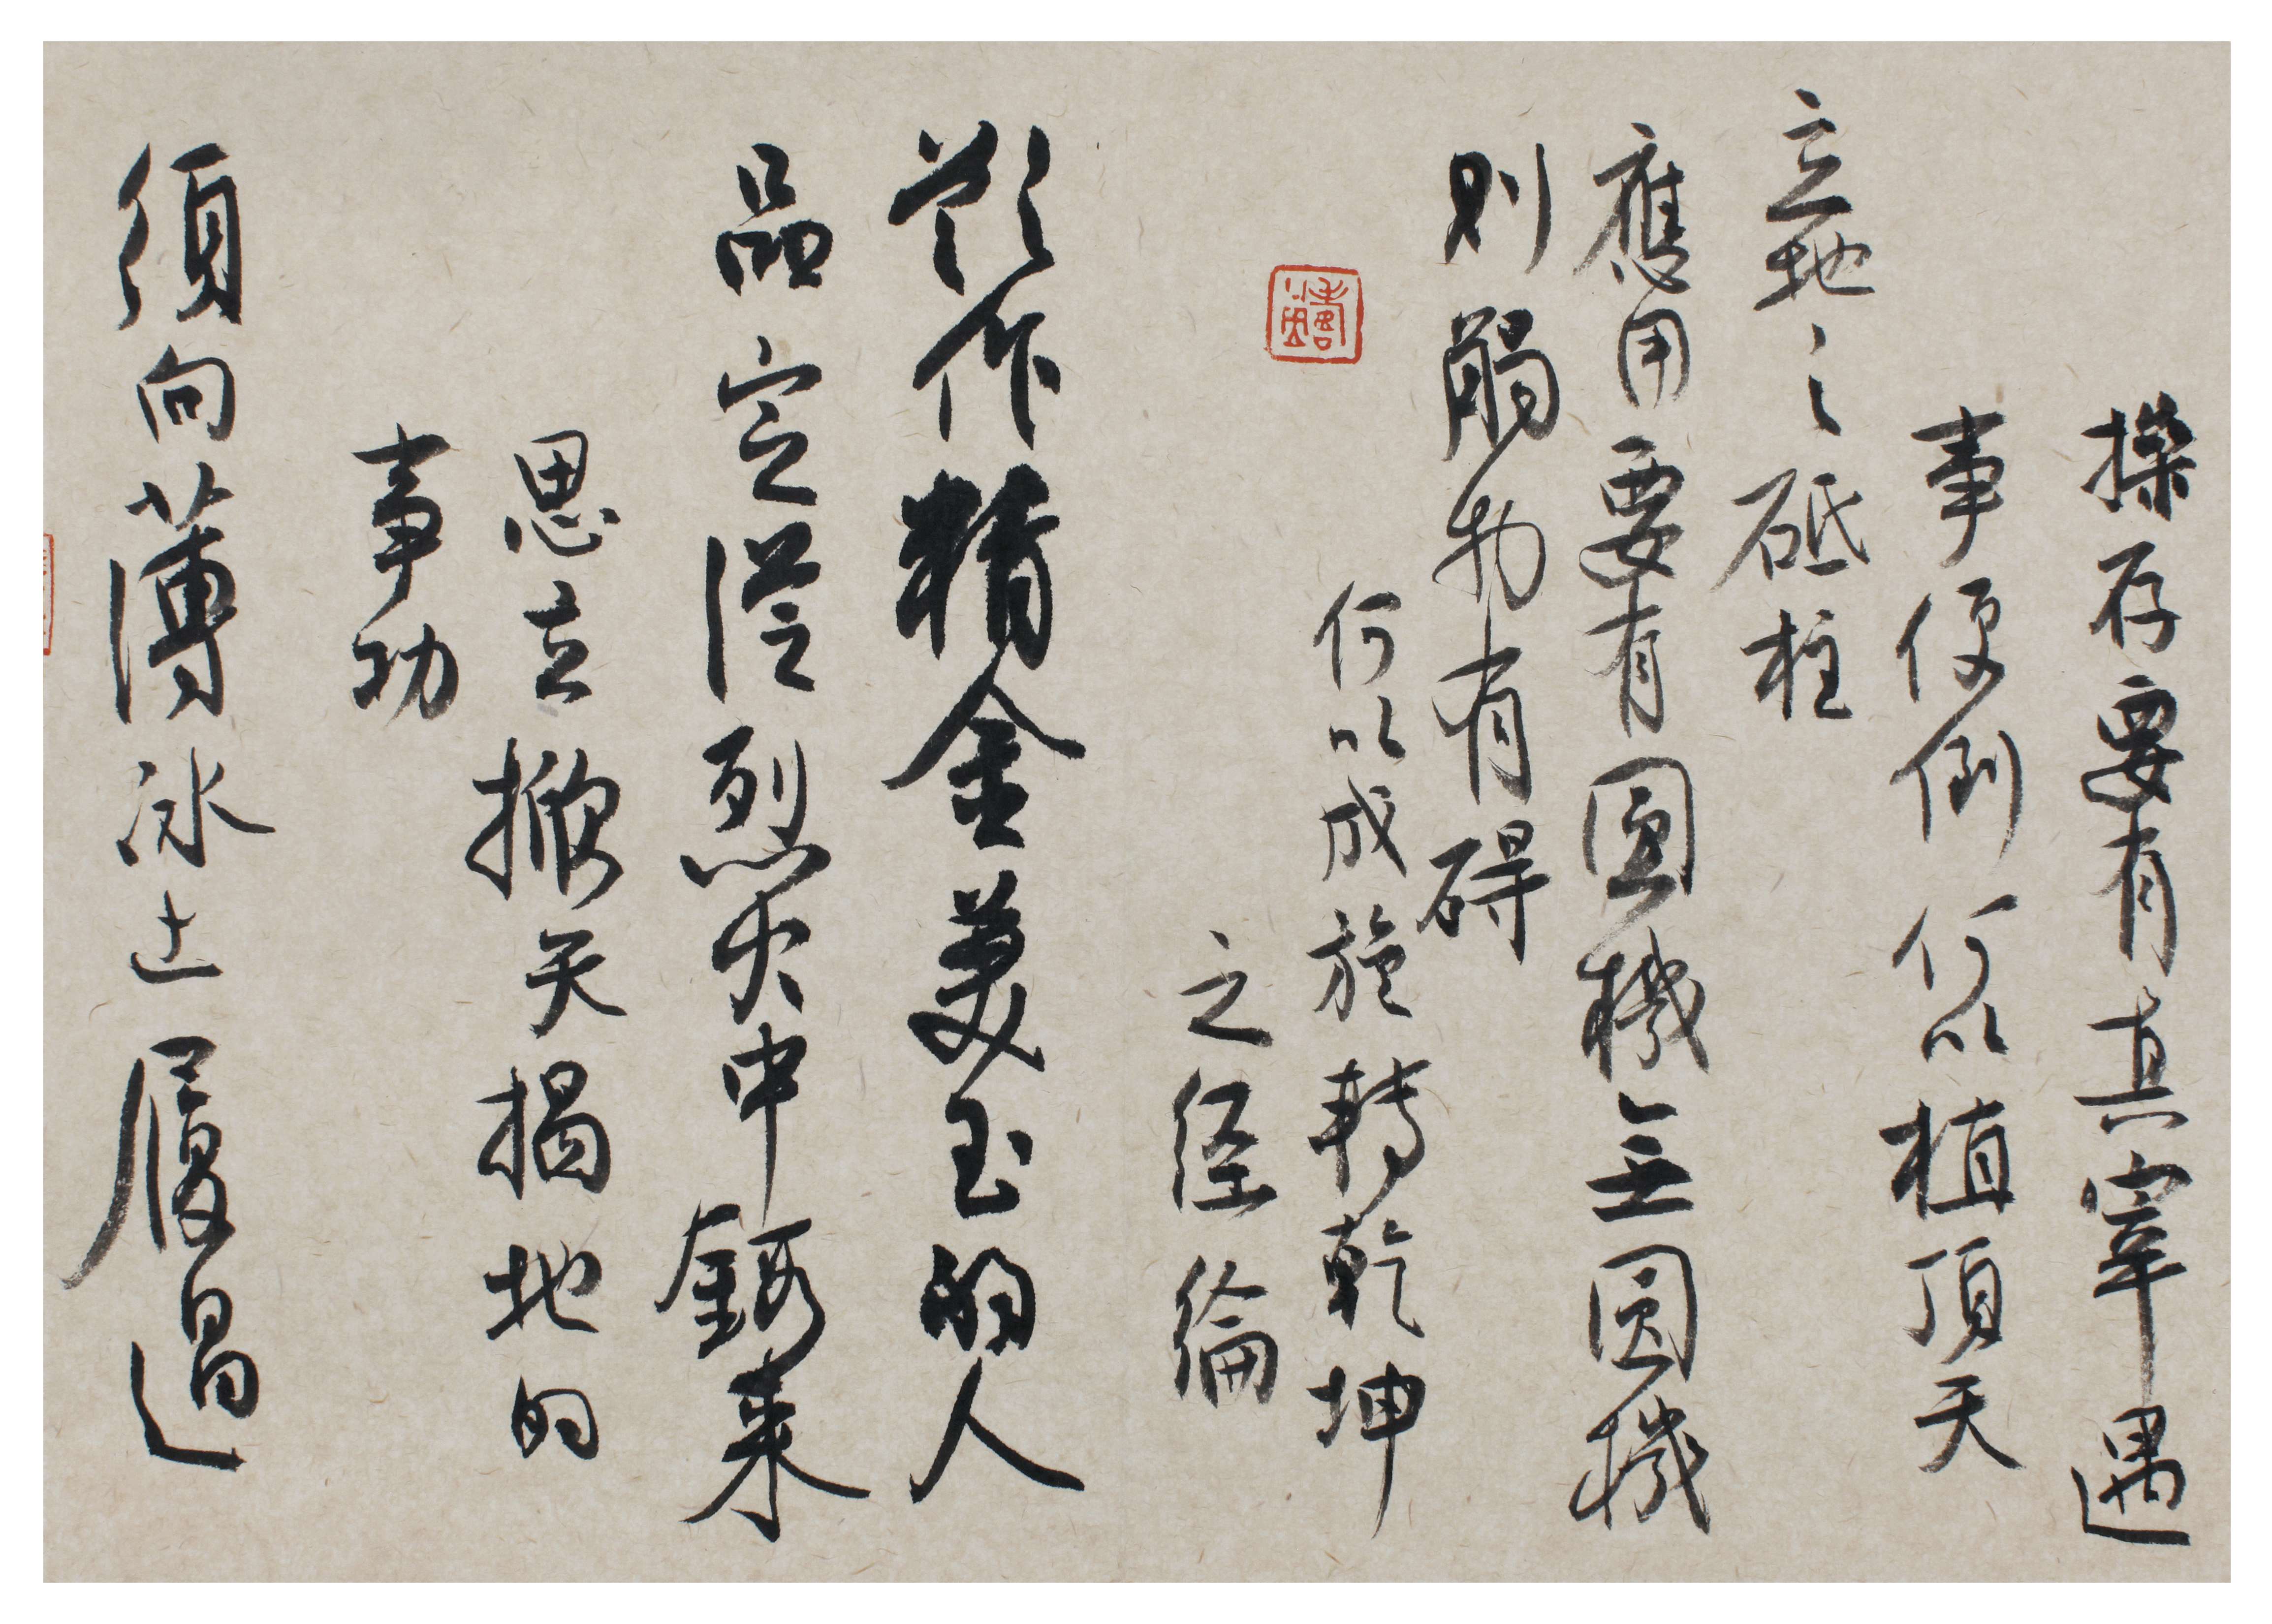 操存要有真宰遇
事便倒何以植頂天
立地之砥柱
應用要有圓機無圓機
則觸物有碍
何以成旋轉乾坤
之經綸
欲作精金美玉的人
品定從烈火中鍛来
思立掀天揭地的
事功
須向薄冰上履過